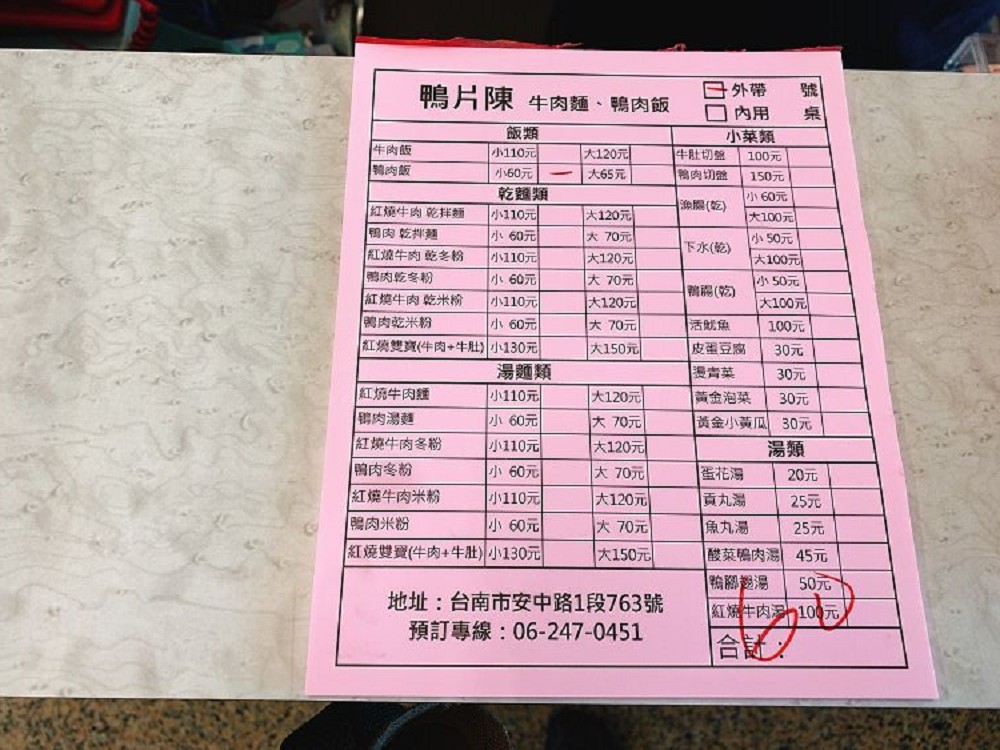 鴨片陳 牛肉麵、鴨肉飯
外帶 號
內用 桌
飯類
牛肉飯 小110元 大120元
鴨肉飯 小60元 一 大65元
乾麵類
紅燒牛肉 乾拌麵 小110元 大120元
鴨肉 乾拌麵 小 60元 大 70元
紅燒牛肉 乾冬粉 小110元 大120元
鴨肉乾冬粉 小 60元 大 70元
紅燒牛肉 乾米粉 小110元 大120元
鴨肉乾米粉 小 60元 大 70元
紅燒雙寶(牛肉+牛肚) 小130元 大150元
湯麵類
紅燒牛肉麵 小110元 大120元
鴨肉湯麵 小 60元 大 70元
紅燒牛肉冬粉 小110元 大120元
鴨肉冬粉 小 60元 大 70元
紅燒牛肉米粉 小110元 大120元
鴨肉米粉 小 60元 大 70元
紅燒雙寶(牛肉+牛肚) 小130元 大150元
地址：台南市安中路1段763號
預訂專線：06-247-0451
小菜類
牛肚切盤 100元
鴨肉切盤 150元
小 60元
大100元
下水(乾) 小 50元
大100元
鴨腸(乾) 小 50元
大100元
活魷魚 100元
皮蛋豆腐 30元
燙青菜 30元
黃金泡菜 30元
黃金小黃瓜 30元
湯類
蛋花湯 20元
貢丸湯 25元
魚丸湯 25元
酸菜鴨肉湯 45元
鴨腳翅湯 50元
紅燒牛肉湯 100元
合計：
60